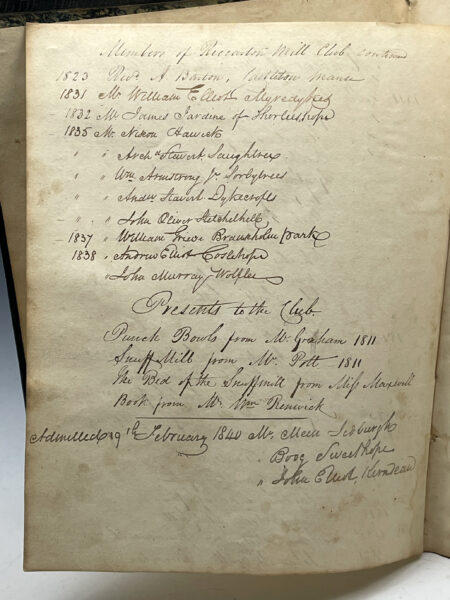 Members of Riccarton Mill Club continued
1823 Revd A Barton, Castleton Manse
1831 Mr William Elliot Myredykes
1832 Mr James Jardine of Thorlieshope
1835 Mr Nixon Hawick
" " Archd Stavert Saughtree
" " Wm Armstrong Jr Sorbytrees
" " Andw Stavert Dykecrofts
" " John Oliver
1837 " William Grieve Branxholm Park
1838 " Andrew Elliot
" John Murray Wolflee
Presents to the Club
Punch Bowls from Mr Graham 1811
Snuff Mill from Mr Pott 1811
The Bed of the Snuffmill from Miss Maxwell
Book from Mr Wm Renwick
Admitted 19th February 1840 Mr
" Boog Sweethope
" John Elliot